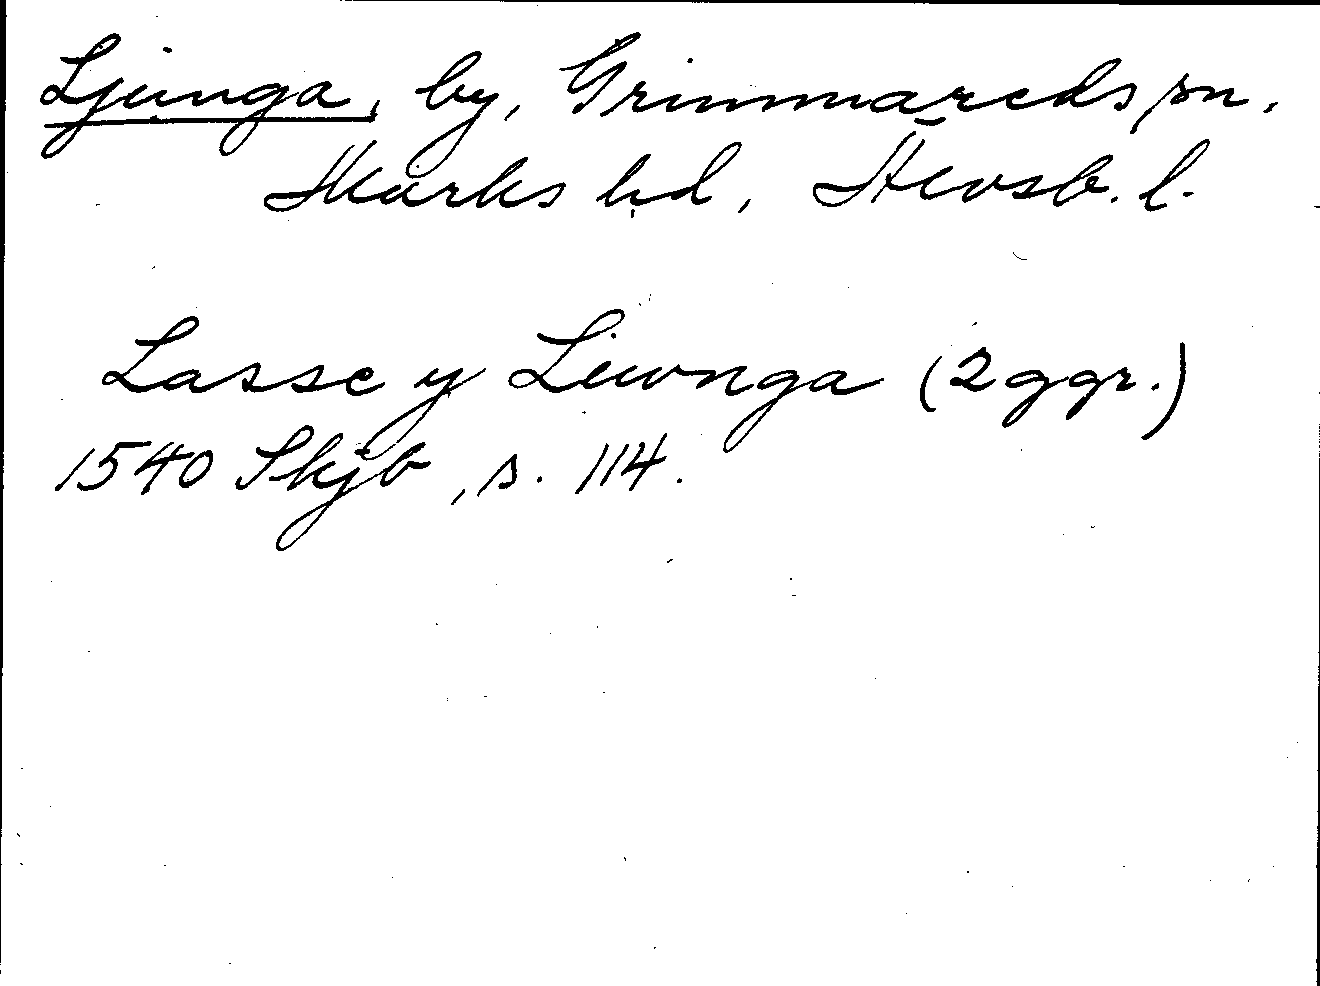 Ljunga, by, Grimmareds sn,
Marks hd, Älvsb. l.
Lasse y Liwnga (2 ggr.)
1540 Skjb, s. 114.